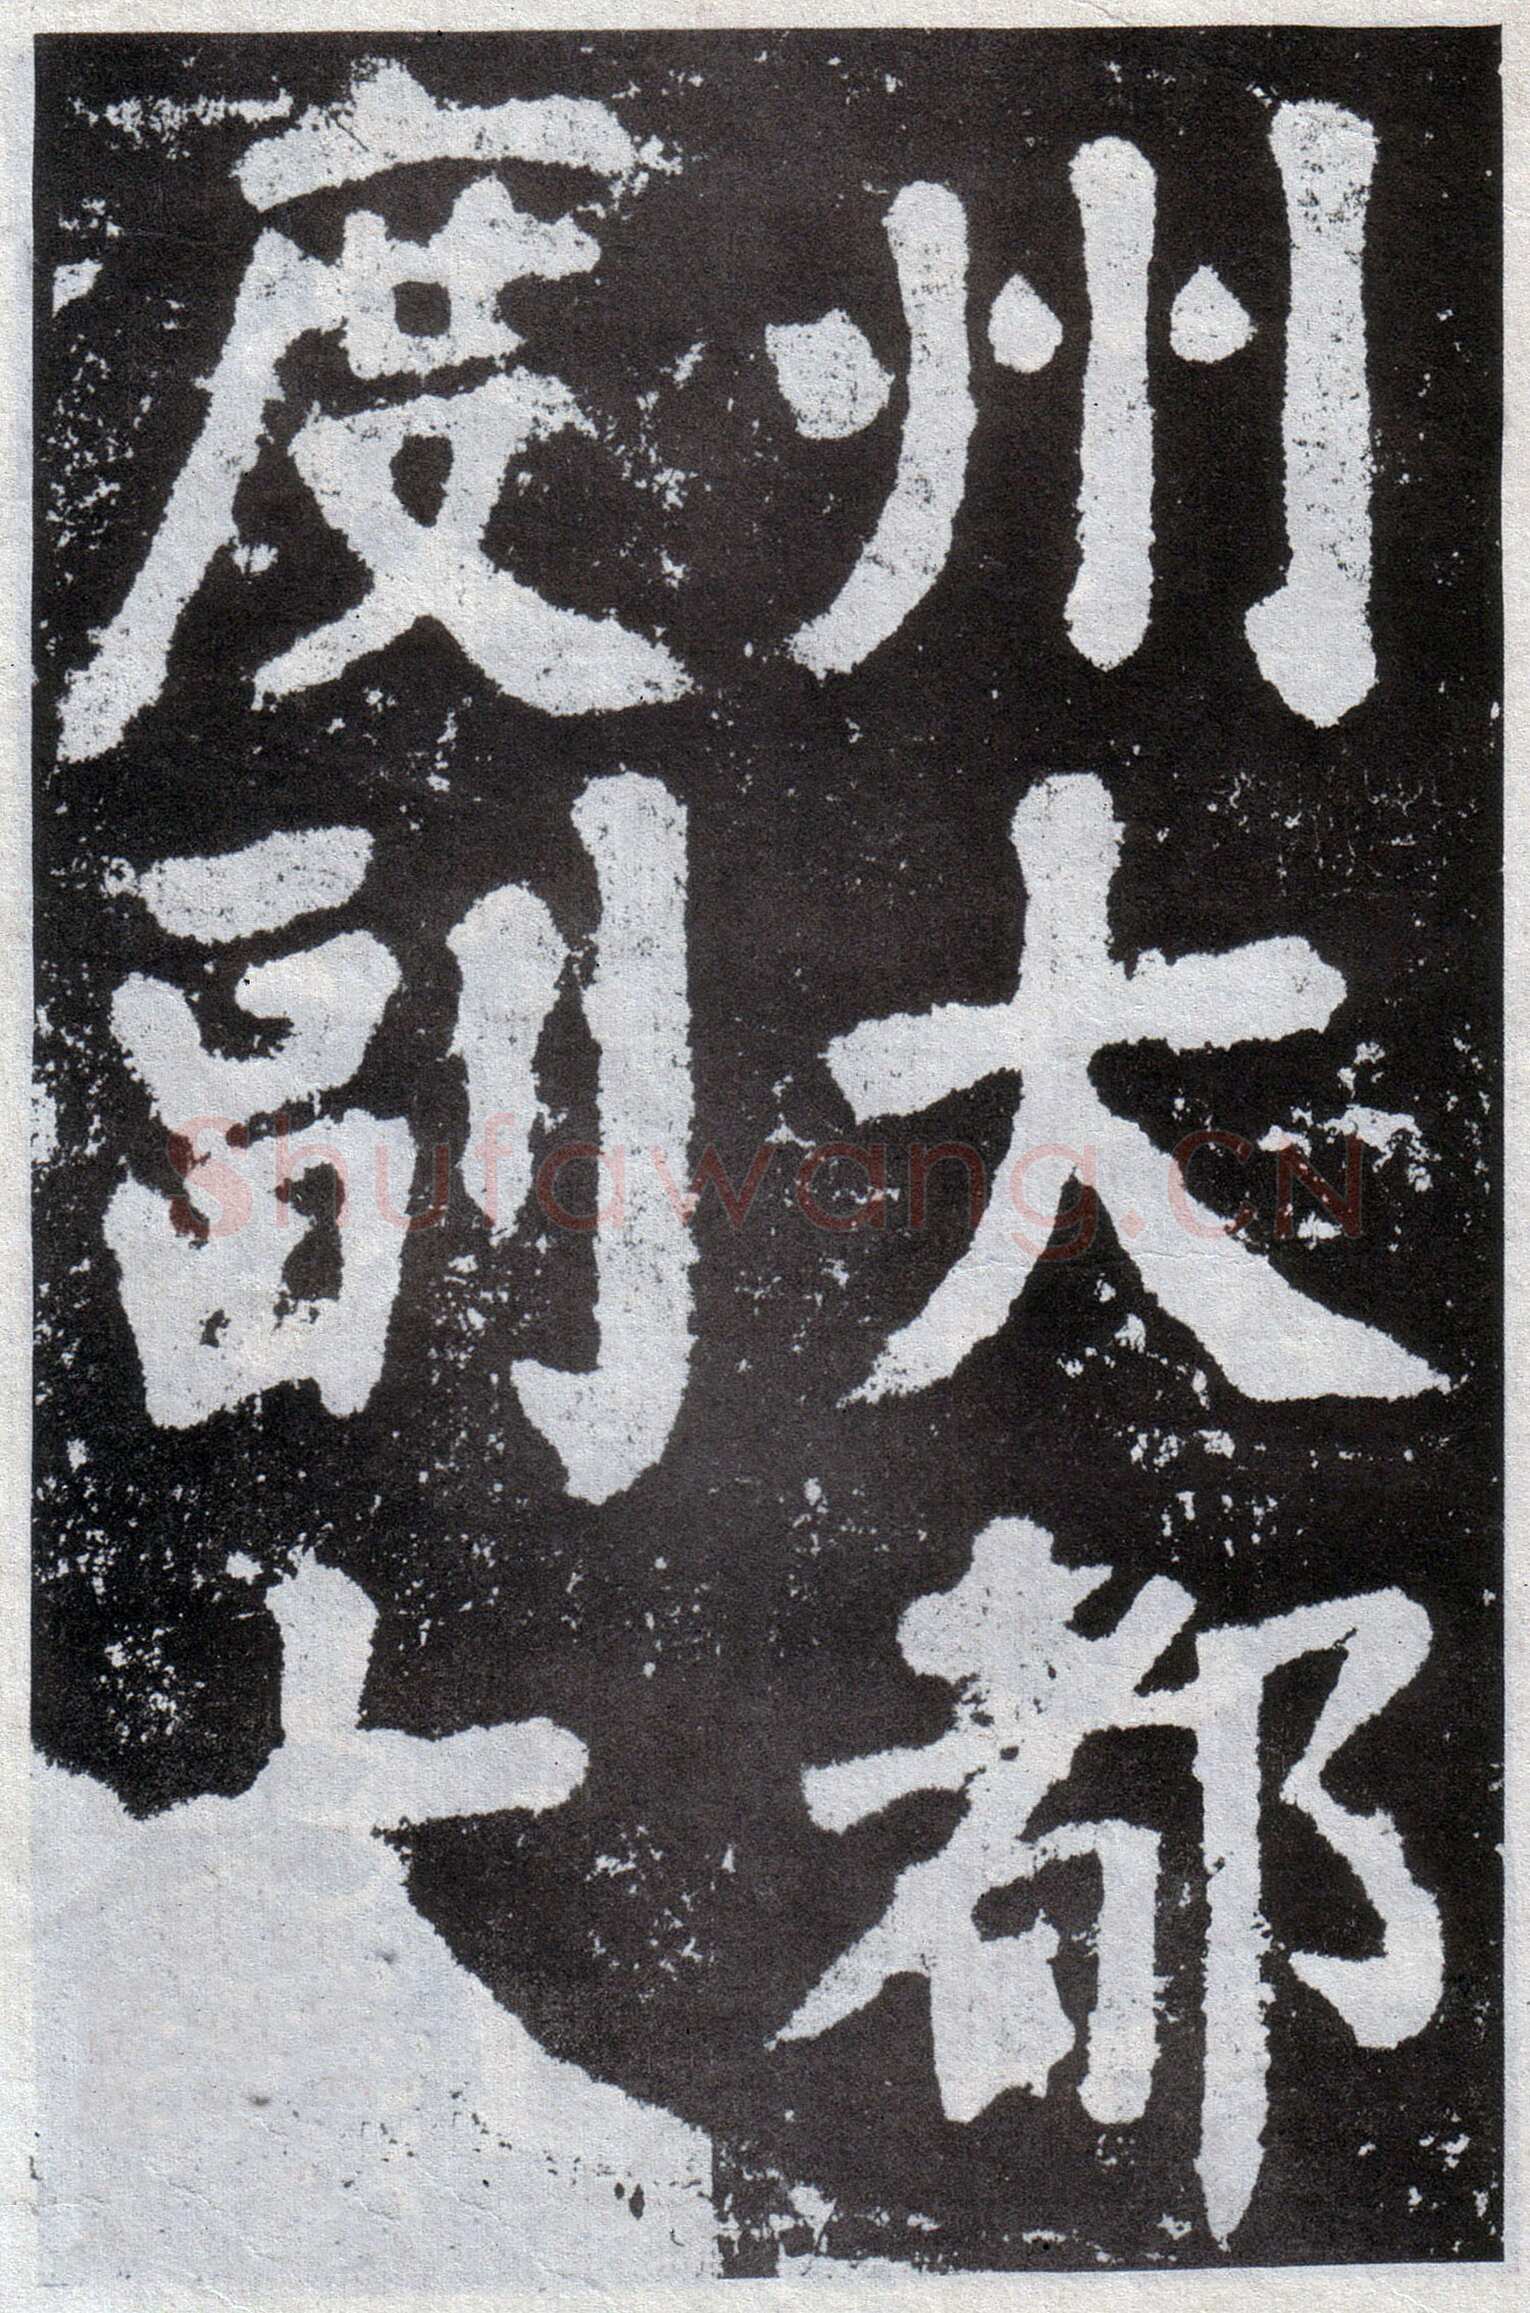 州大都
度副
Shufawang.CN